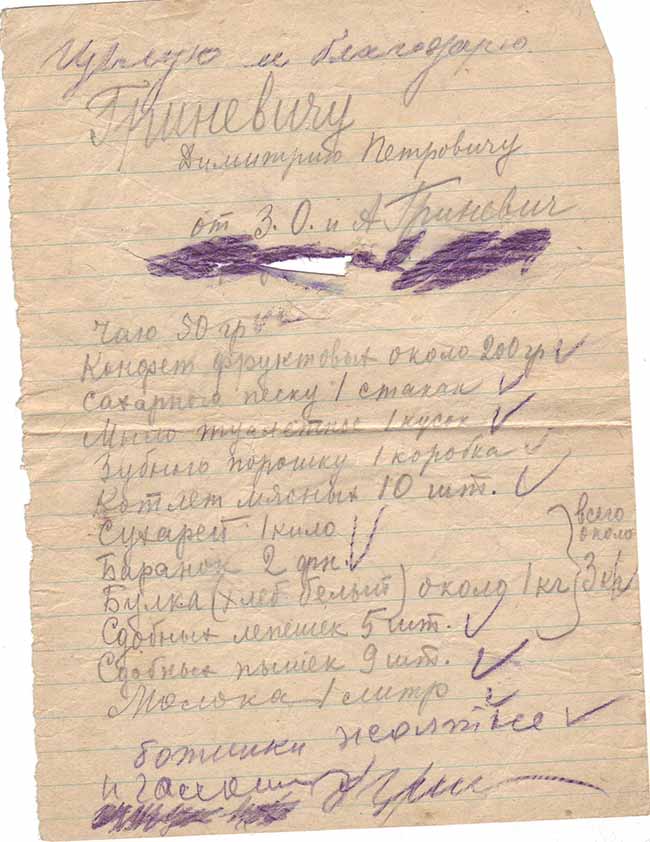 Целую и благодарю
Гриневичу
Димитрию Петровичу
от З. О. и А Гриневич
Чаю 50 гр
Конфет фруктовых около 200 гр
Сахарного песку 1 стакан
Мыло туалетные 1 кусок
Зубного порошку 1 коробка
Котлет мясных 10 шт.
Сухарей 1 кило
Баранок 2 фн
Булка (хлеб белый) около 1 кг
всего
около
3 кг
Сдобных лепешек 5 шт.
Сдобных пышек 9 шт.
Молока 1 литр
ботинки жолтые
и галоши